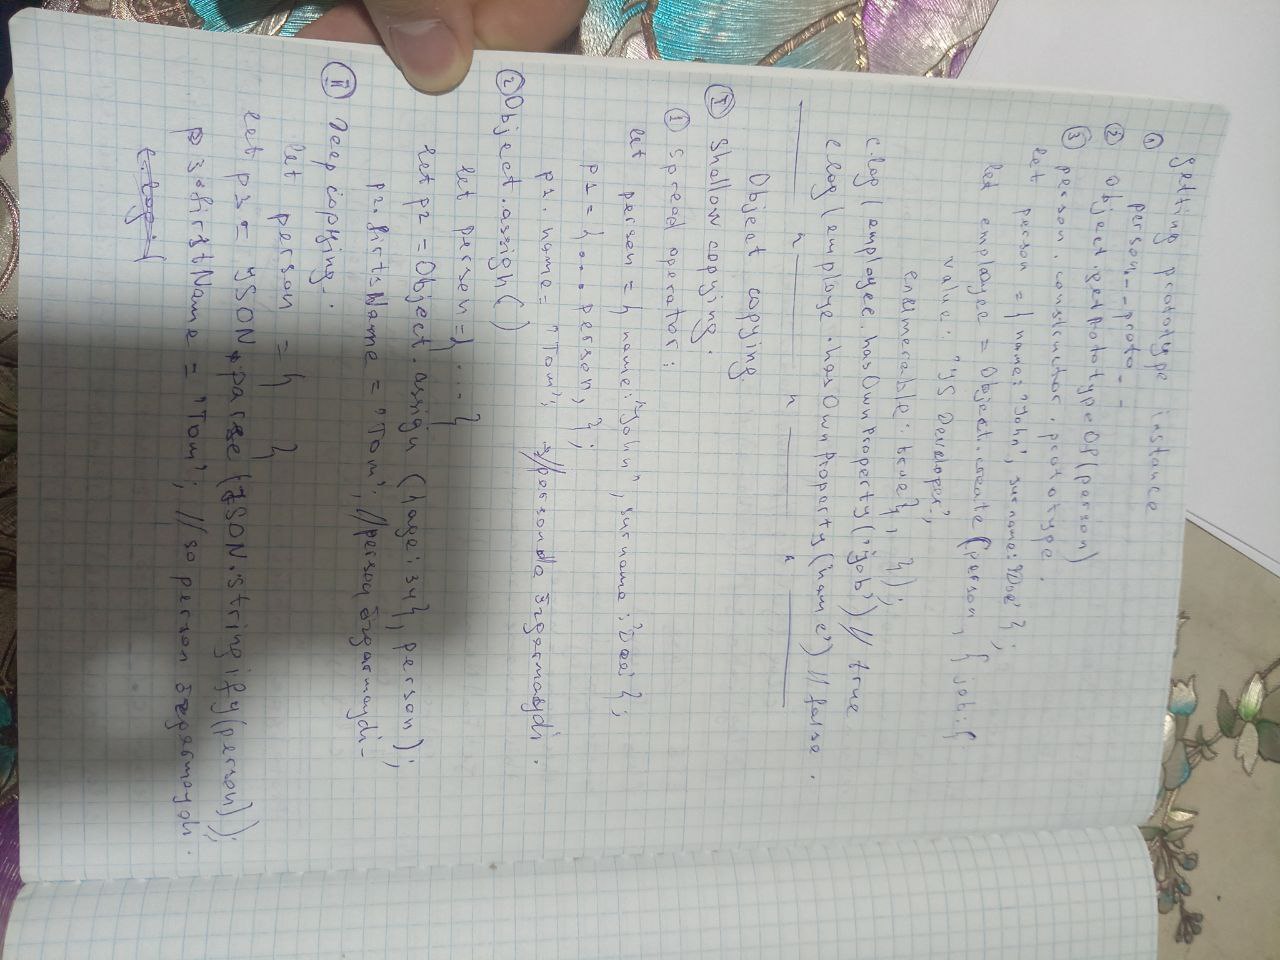 getting prototype instance
① person.__proto__
② Object.getPototypeOf(person)
③ person.constructor.prototype.
let person = {name: "John", surname: "Doe"};
let employee = Object.create(person, { job: {
value: "JS Developer",
enumerable: true}, });
c.log(employee.hasOwnProperty("job") // true
c.log(employe.hasOwnProparty("name") // false.
Object copying.
Ⅰ Shallow copying.
① Spread operator:
let person = { name: "John", surname: "Doe" };
p2 = { ...person, };
p2.name = "Tom"; //personda
② Object.assign()
let person = { ... }
let p2 = Object.assign({age: 34}, person);
p2.firtsName = "Tom"; //person
Ⅱ Deep copying:
let person = { }
let p3 = JSON.parse(JSON.stringify(person));
p3.firstName = "Tom"; // so person